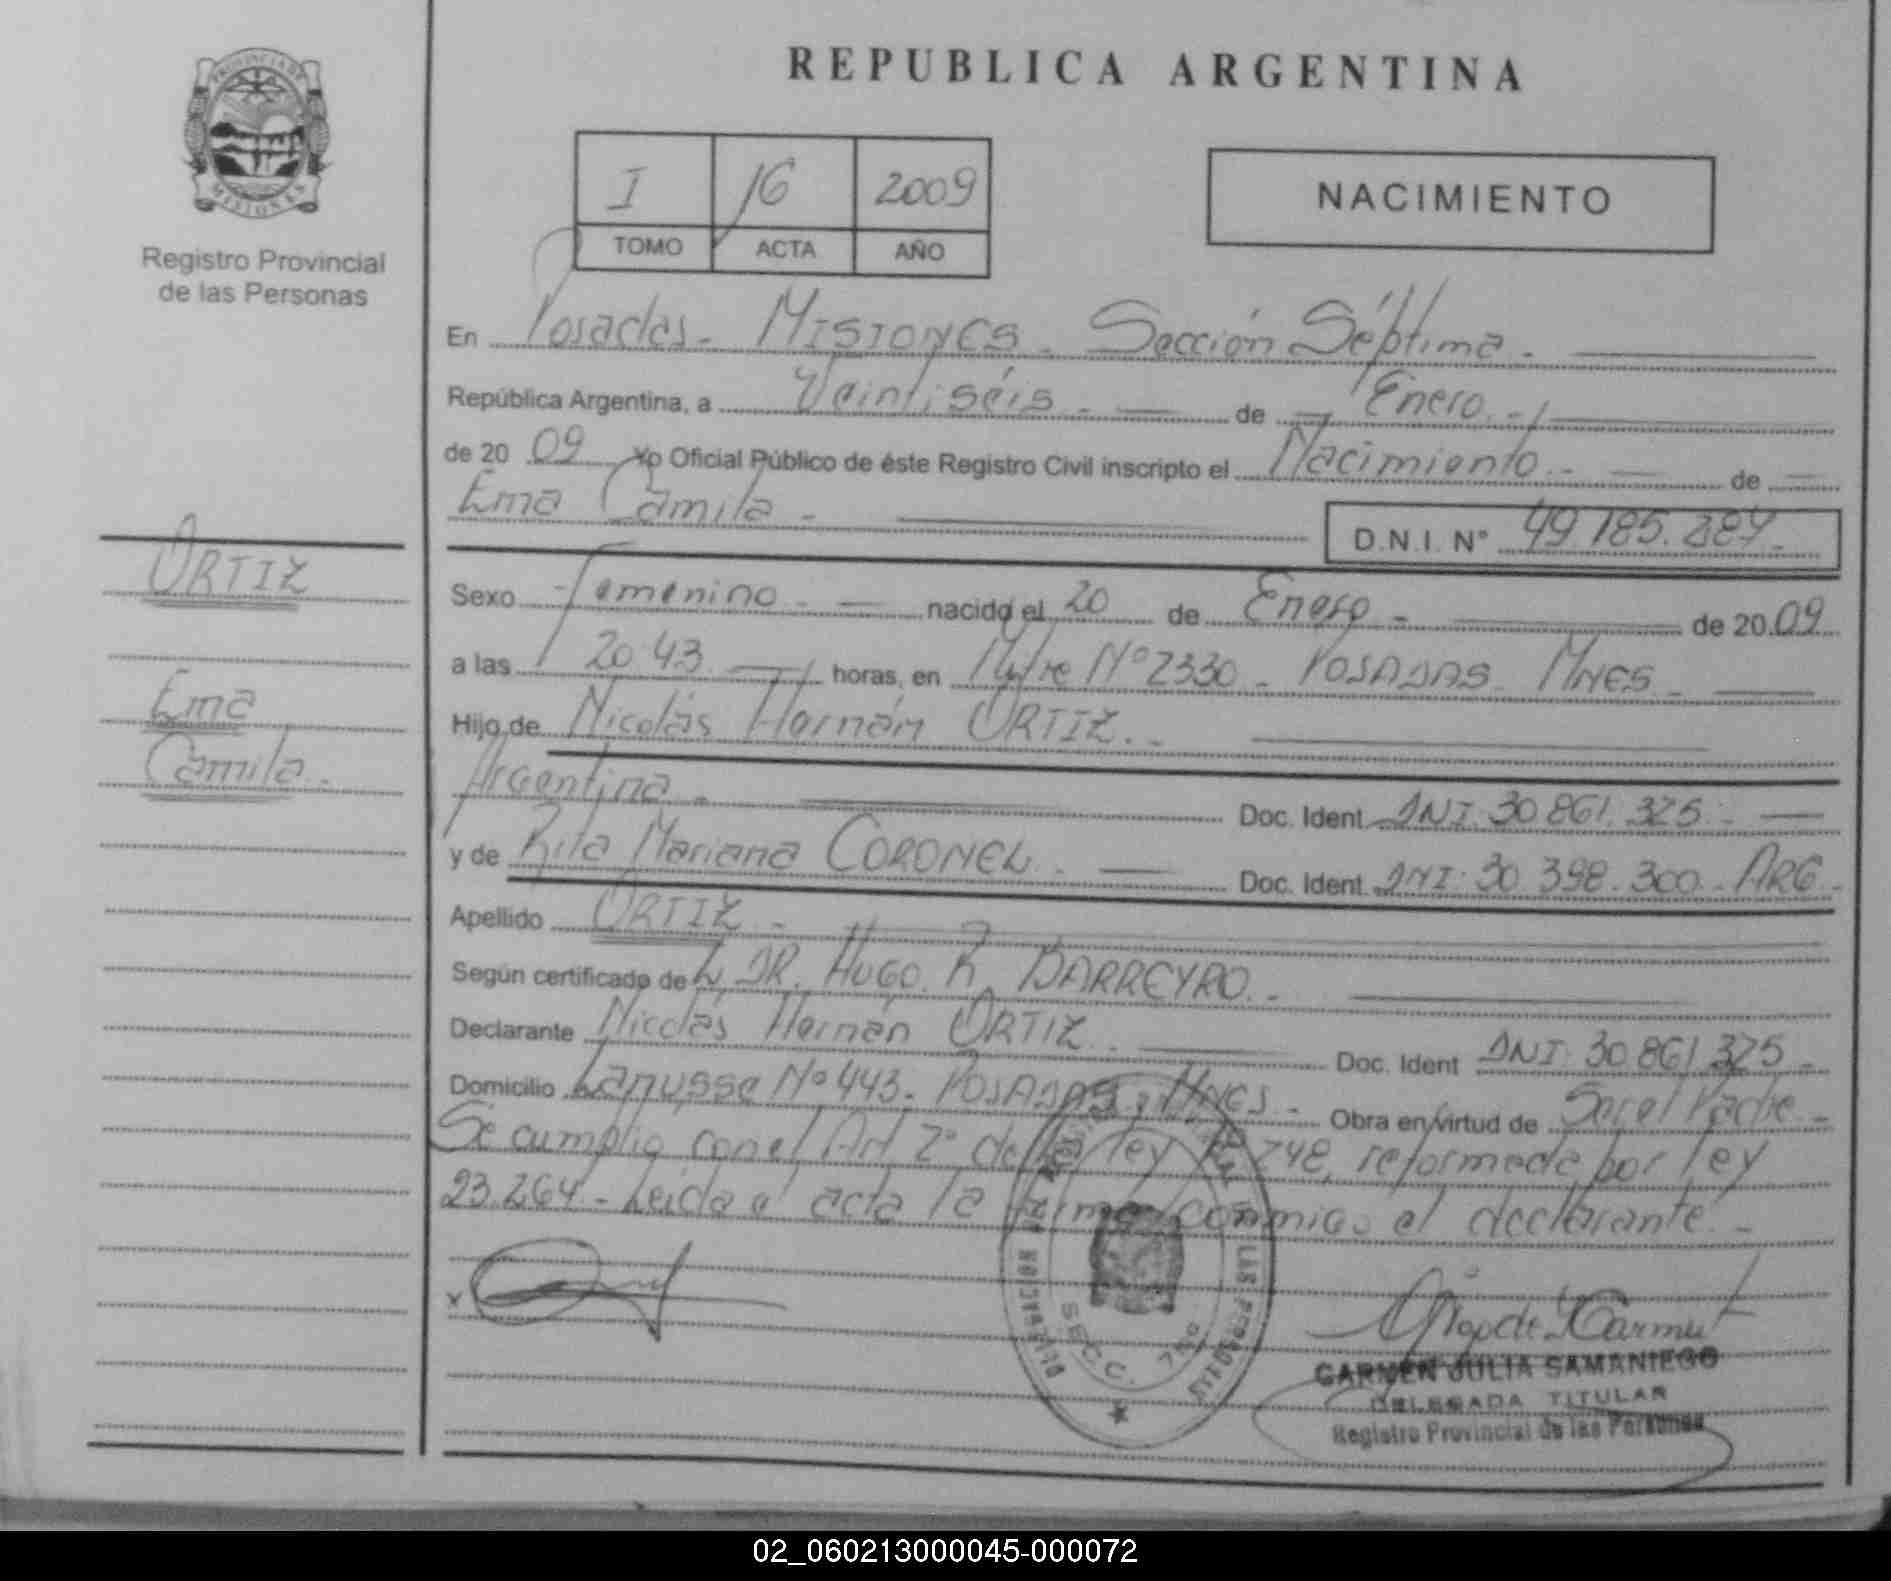 PROVINCIA DE
MISIONES
Registro Provincial
de las Personas
ORTIZ
Ema
Camila.-
REPUBLICA ARGENTINA
I 16 2009
TOMO ACTA AÑO
NACIMIENTO
En Posadas - MISIONES - Sección Séptima -
República Argentina, a Veintiséis - de Enero -
de 20 09 Yo Oficial Público de éste Registro Civil inscripto el Nacimiento - de
Ema Camila - D.N.I. N° 49.185.287-
Sexo Femenino - nacido el 20 de Enero - de 20 09
a las 20:43 horas, en Mitre N° 2330 - POSADAS - MNES -
Hijo de Nicolás Hernán ORTIZ.-
Argentina - Doc. Ident DNI 30.861.325.-
y de Rita Mariana CORONEL. - Doc. Ident. DNI: 30.398.300 - ARG -
Apellido ORTIZ -
Según certificado de DR. HUGO R. BARREYRO.-
Declarante Nicolás Hernán ORTIZ. - Doc. Ident DNI: 30.861.325 -
Domicilio Lanusse N° 443 - POSADAS - MNES - Obra en virtud de Ser el Padre -
Se cumplio con el Art 2° de la ley 748, reformada por ley
23.264.- Leida el acta la firma conmigo el declarante -
x
SECC. 7
CARMEN JULIA SAMANIEGO
DELEGADA TITULAR
Registro Provincial de las Personas
02_060213000045-000072